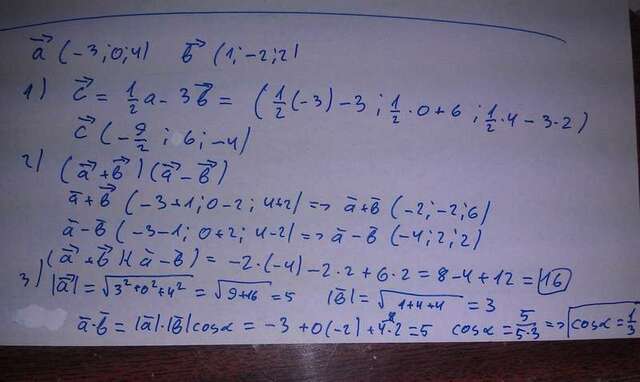 a⃗ (-3; 0; 4)   b⃗ (1; -2; 2)
1) c⃗ = 1/2 a - 3b⃗ = (1/2(-3) - 3; 1/2·0+6; 1/2·4 - 3·2)
c⃗ (-9/2; 6; -4)
2) (a⃗+b⃗)(a⃗-b⃗)
a⃗+b⃗ (-3+1; 0-2; 4+2) => a̅+b̅ (-2; -2; 6)
a̅-b̅ (-3-1; 0+2; 4-2) => a̅-b̅ (-4; 2; 2)
(a⃗+b⃗)(a̅-b̅) = -2·(-4) - 2·2 + 6·2 = 8-4+12 = 16
3) |a⃗| = √(3²+0²+4²) = √(9+16) = 5   |b̅| = √(1+4+4) = 3
a̅·b̅ = |a̅|·|b̅|cosα = -3+0(-2)+4·2 = 5   cosα = 5/5·3 => cosα = 1/3